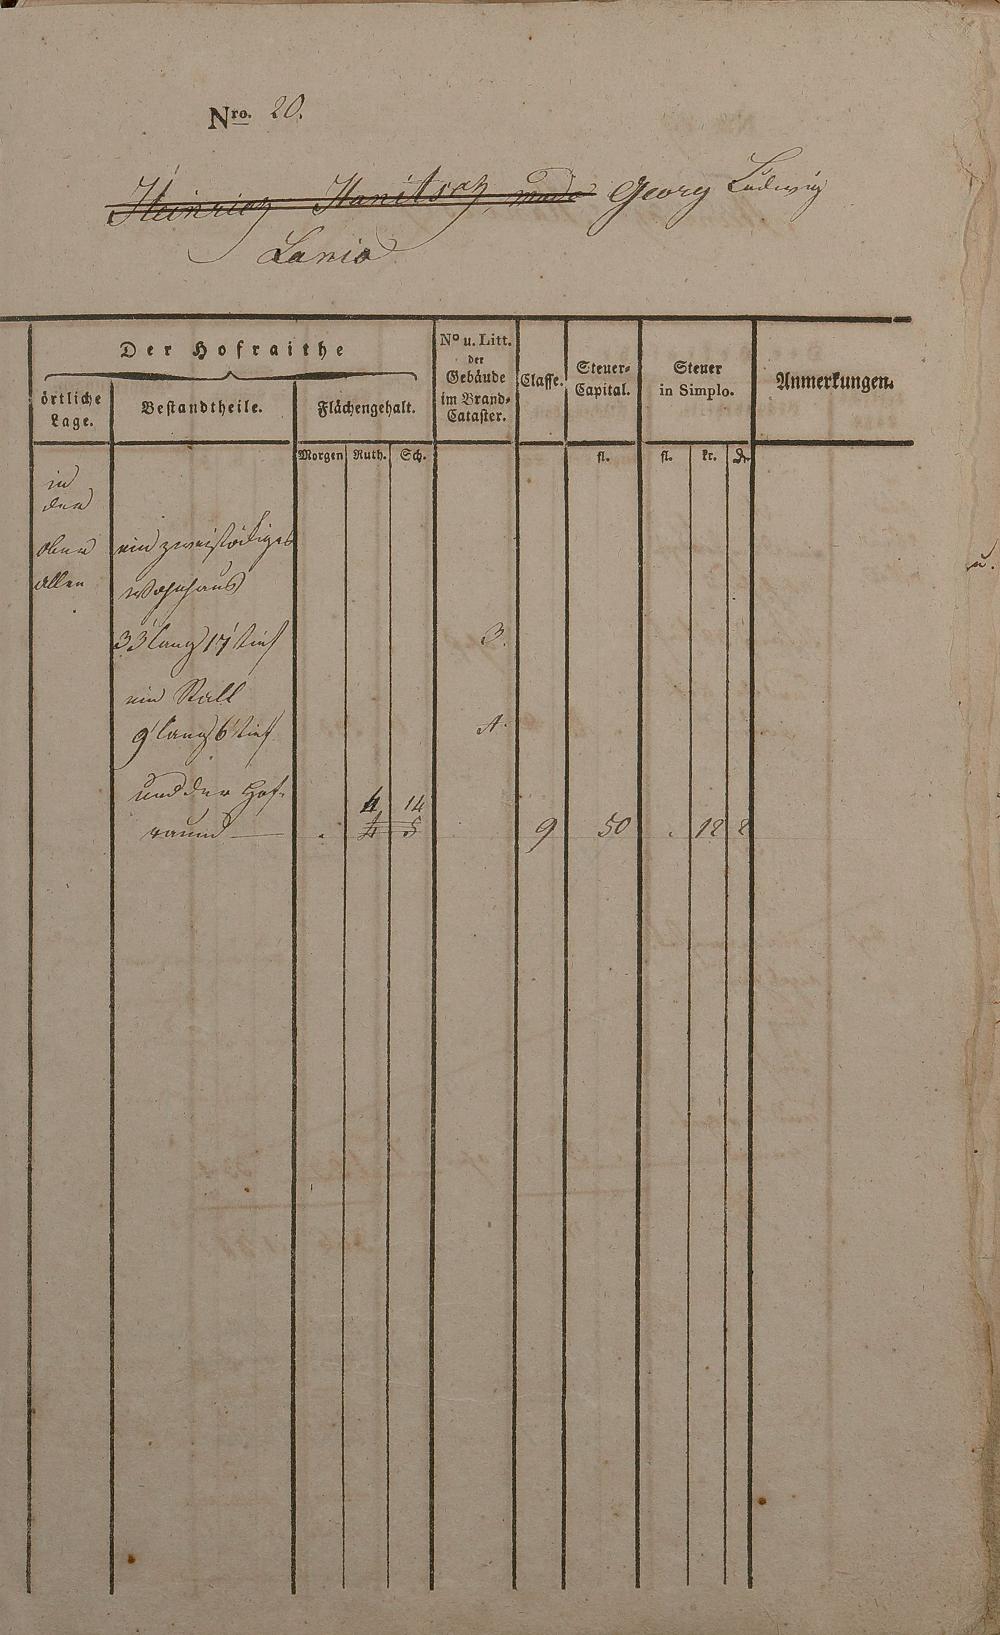 Nro. 20.
Heinrich Hanitsch, modo Georg Ludwig
Lanio
Der Hofraithe
No u. Litt.
der
Gebäude
im Brand-
Cataster.
Classe.
Steuer-
Capital.
Steuer
in Simplo.
Anmerkungen.
örtliche
Lage.
Bestandtheile.
Flächengehalt.
Morgen Ruth. Sch. fl. fl. kr. dr
in
der
obern ein zweistöckiges
allen Wohnhaus
33' lang 17' tief 3.
ein Stall
9' lang 6' tief A.
und der Hof-
4 14
raum — . 4 5 9 50 . 12 2
u.